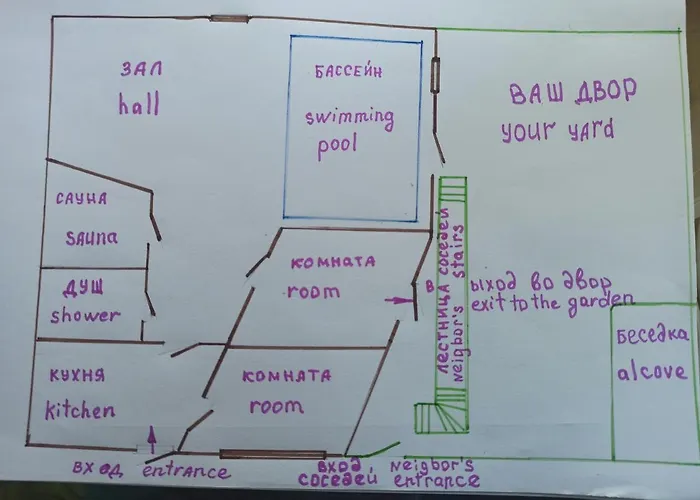 ЗАЛ
hall
БАССЕЙН
swimming
pool
ВАШ ДВОР
your yard
САУНА
sauna
ДУШ
shower
КУХНЯ
kitchen
КОМНАТА
room
КОМНАТА
room
ЛЕСТНИЦА СОСЕДЕЙ
neigbor's stairs
ВЫХОД ВО ДВОР
exit to the garden
БЕСЕДКА
alcove
ВХОД entrance
ВХОД, neigbor's
СОСЕДЕЙ entrance